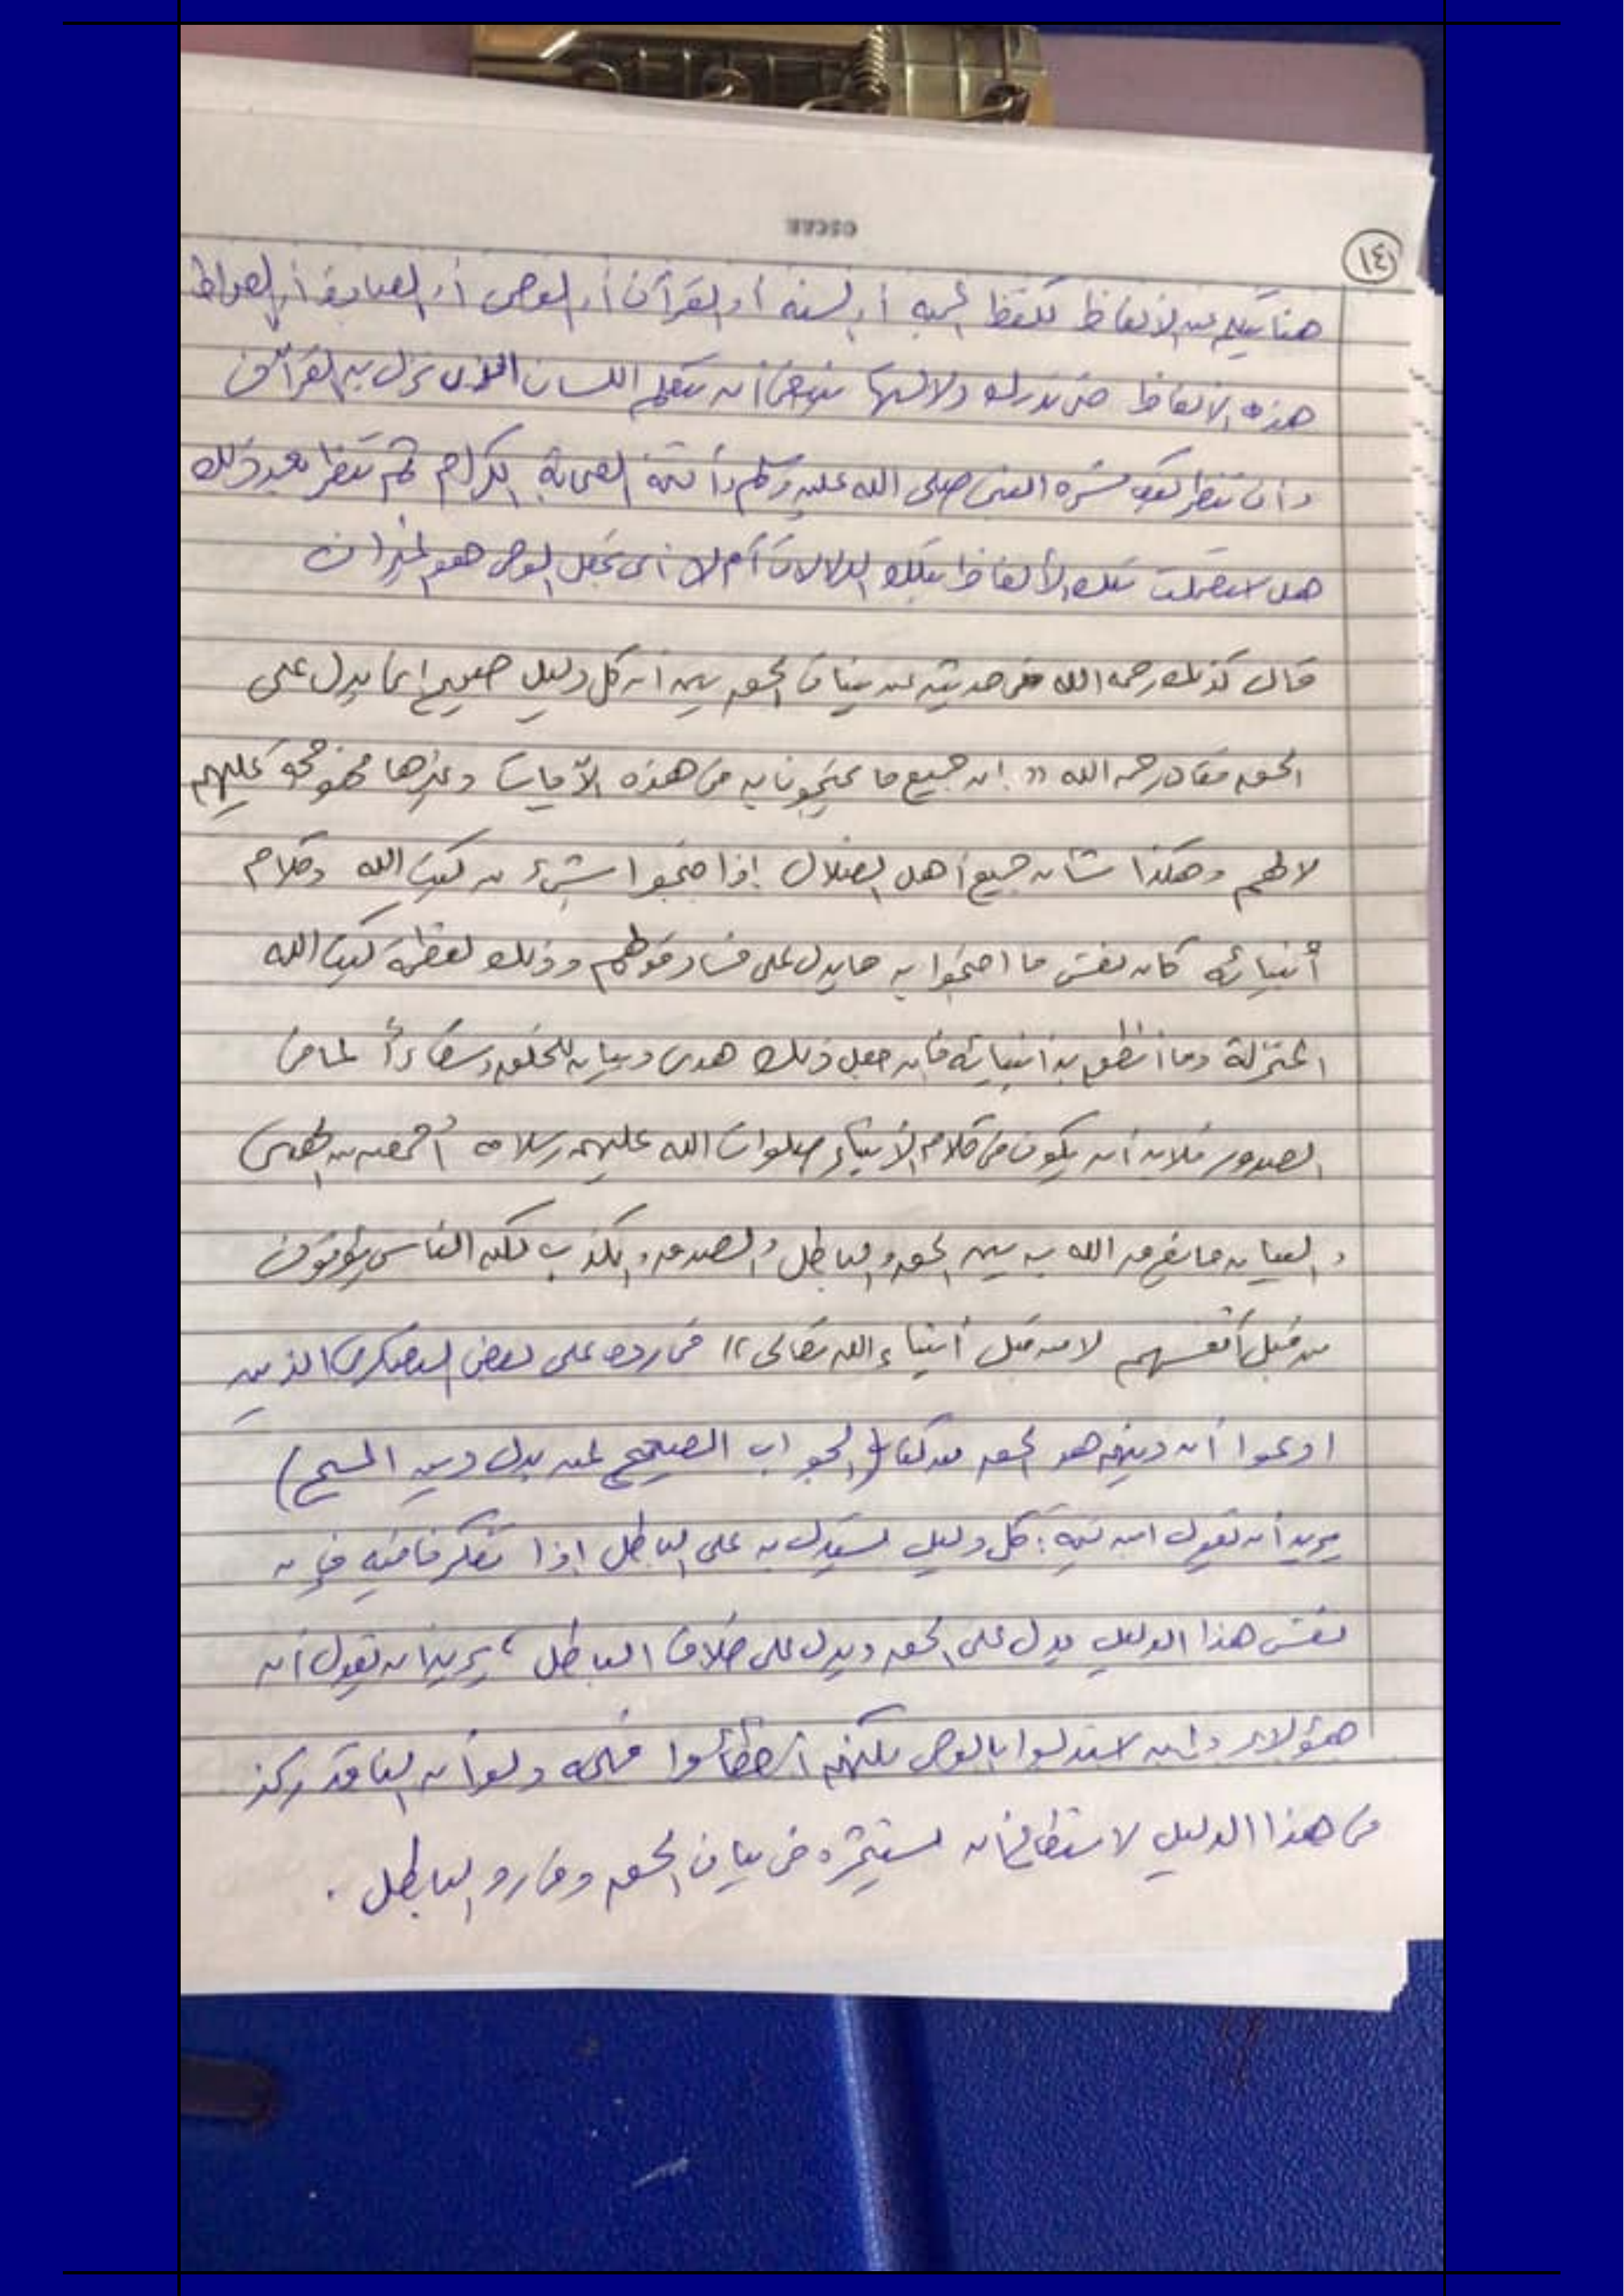 ١٤١
هنا يتكلم عن الألفاظ كلفظ أو السنه أو القرآن أو الوحى أو أو الصراط
هذه الألفاظ حتى تدرك دلالتها ينبغى أن تتعلم اللسان الذى نزل به القرآن
وأن تنظر كيف فسره النبى صلى الله عليه وسلم وأئمة الصحابة الكرام ثم تنظر بعد ذلك
هل استعملت تلك الألفاظ بتلك الدلالات أم لا أى تجعل الوحى هو الميزان
قال كذلك رحمه الله فى حديثه عن بيان الحق يبين أن كل دليل صحيح إنما يدل على
الحق فقال رحمه الله " إن جميع ما يحتجون به من هذه الآيات وغيرها فهو حجة عليهم
لا لهم وهكذا شأن جميع أهل الضلال إذا احتجوا بشىء من كتب الله وكلام
أنبيائه كان نفس ما احتجوا به ما يدل على فساد قولهم وذلك لعظمة كتب الله
المنزلة وما أنطق به أنبيائه فإنه جعل ذلك هدى وبيان للخلق وشفاءاً لما فى
الصدور فلابد أن يكون فى كلام الأنبياء صلوات الله عليهم وسلامه أجمعين من الهدى
والبيان ما يفرق الله به بين الحق والباطل والصدق والكذب لكن الناس يؤتون
من قبل أنفسهم لا من قبل أنبياء الله تعالى " فى رده على بعض الذين
ادعوا أن دينهم هو الحق من كتاب (الجواب الصحيح لمن بدل دين المسيح)
يريد أن يقول ابن تيمية: كل دليل يستدل به على الباطل إذا تفكرنا فيه فإن
نفس هذا الدليل يدل على الحق ويدل على خلاف الباطل ، يريد أن يقول أن
هؤلاء وإن استدلوا بالوحى لكنهم أخطأوا فهمه ولو أن الناقد ركز
فى هذا الدليل لاستطاع أن يستثمره فى بيان الحق وفى رد الباطل .